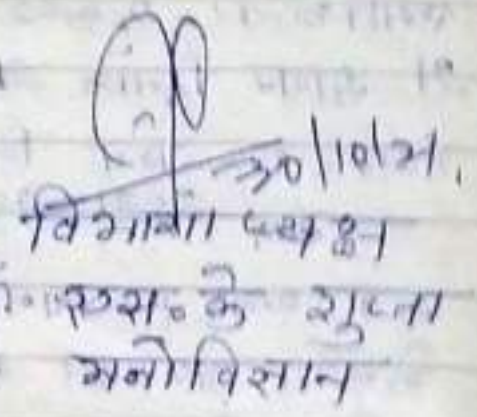 30/10/21.
विभागाध्यक्ष
एस. के गुप्ता
मनोविज्ञान